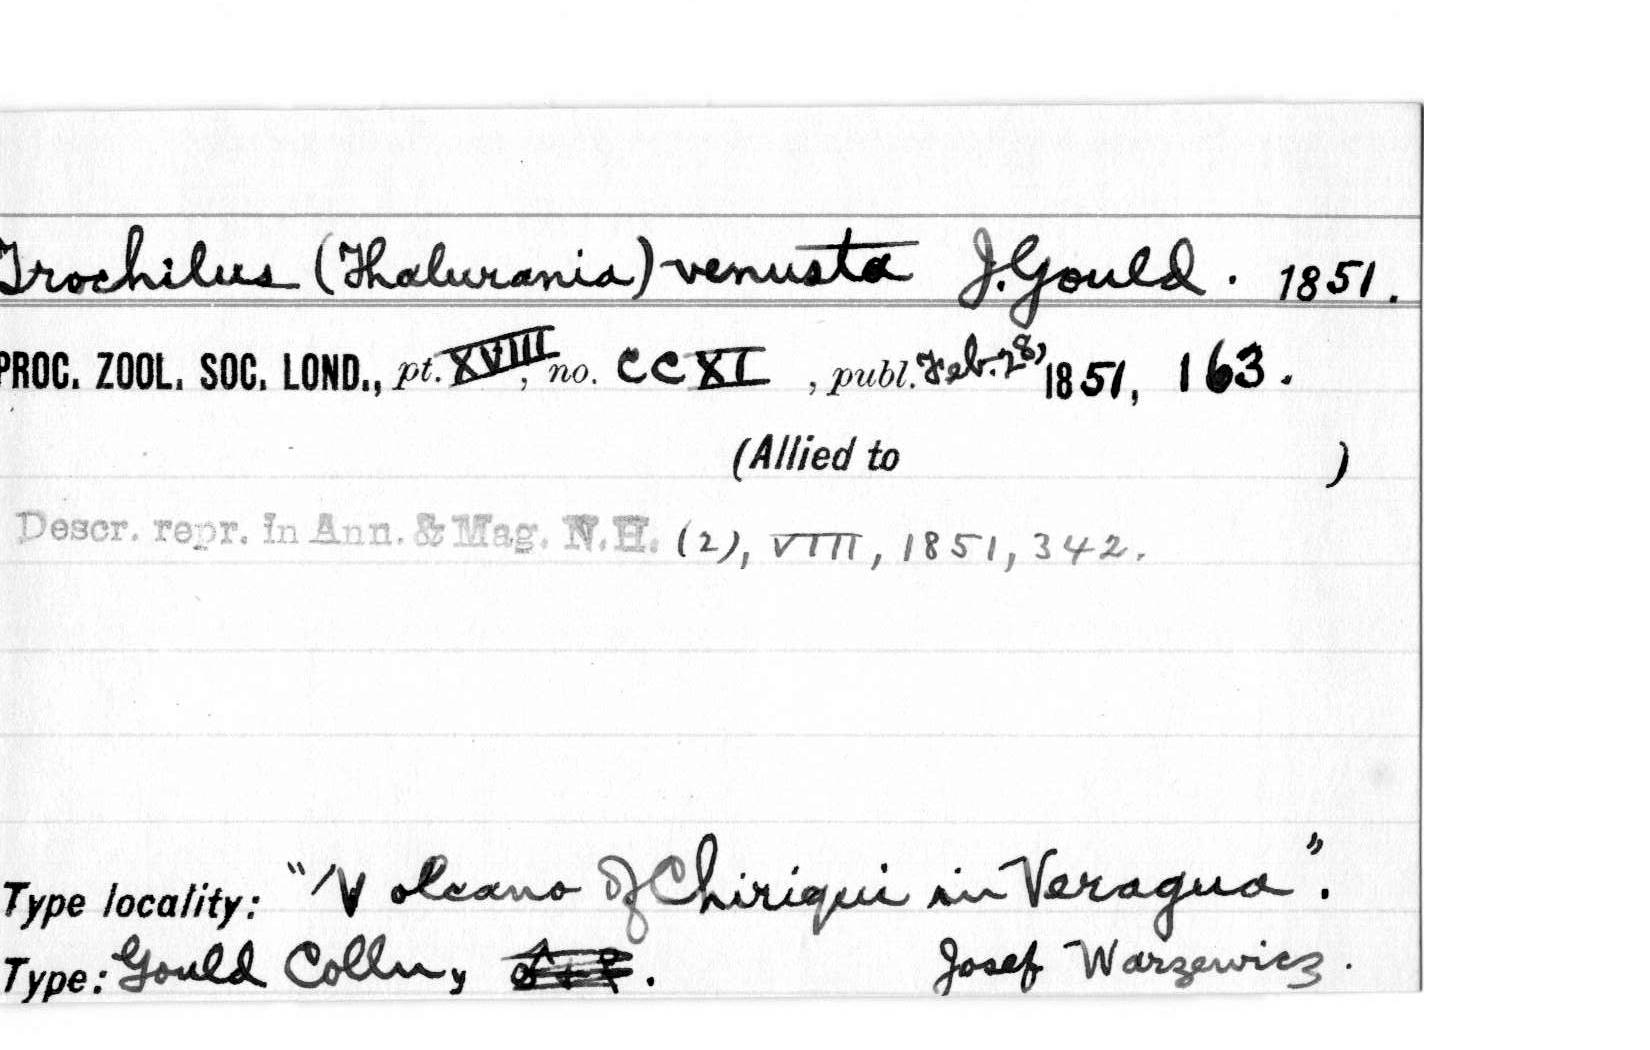 Trochilus (Thalurania) venusta J. Gould. 1851.
PROC. ZOOL. SOC. LOND., pt. XVIII, no. CCXI, publ. Feb. 28, 1851, 163.
(Allied to )
Descr. repr. in Ann. & Mag. N.H. (2), VIII, 1851, 342.
Type locality: "Volcano of Chiriqui in Veragua".
Type: Gould Colln, . Josef Warzewicz.